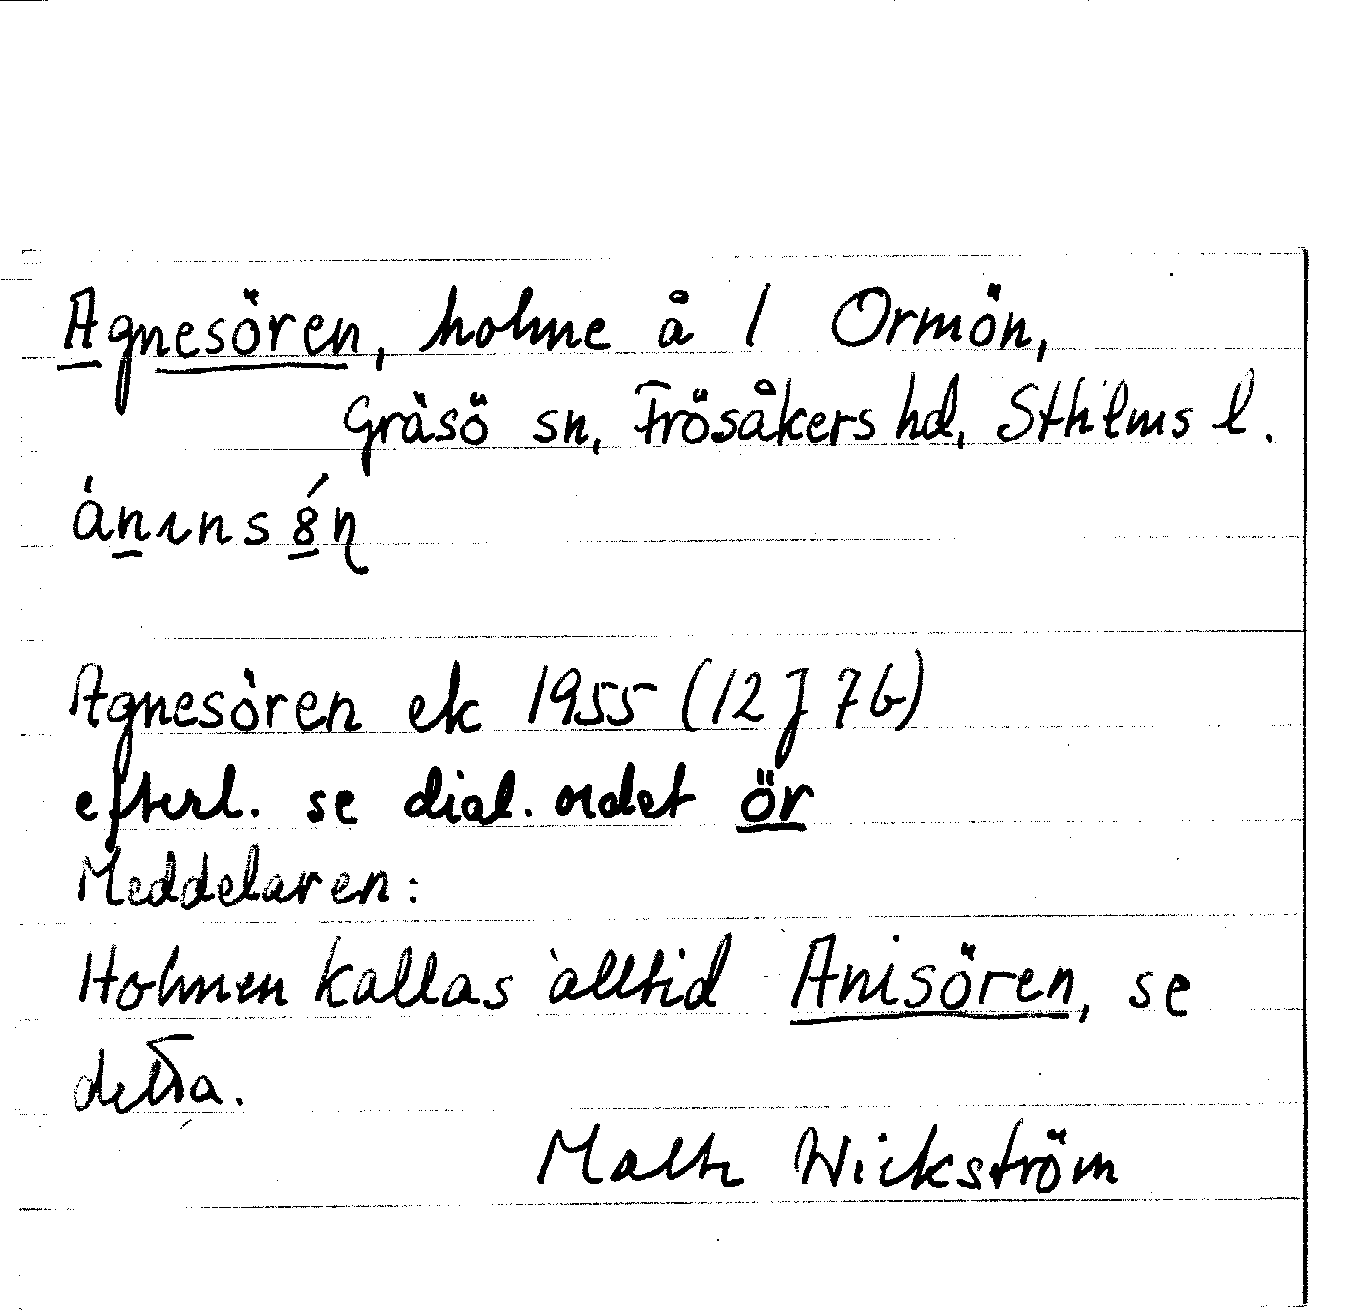 Agnesören, holme å 1 Ormön,
Gräsö sn, Frösåkers hd, Sthlms l.
Agnesören ek 1955 (12 J 7b)
efterl. se dial. ordet ör
Meddelaren:
Holmen kallas alltid Anisören, se
detta.
Malte Wickström